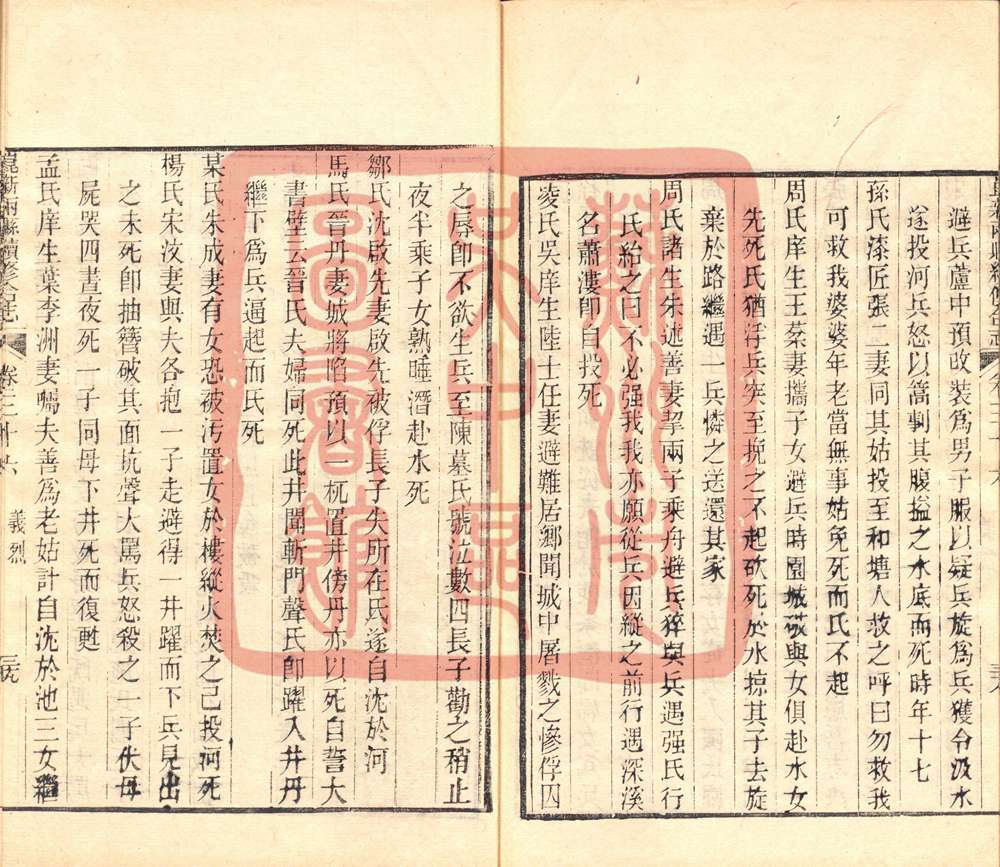 避兵蘆中預改裝爲男子服以疑兵旋爲兵獲令汲水
遂投河兵怒以篙刺其腹搤之水底而死時年十七
孫氏漆匠張二妻同其姑投至和塘人救之呼曰勿救我
可救我婆婆年老當無事姑免死而氏不起
周氏庠生王棻妻攜子女避兵時園城破與女俱赴水女
先死氏猶浮兵突至挽之不起砍死於水掠其子去旋
棄於路繼遇一兵憐之送還其家
周氏諸生朱述善妻挈兩子乘舟避兵猝與兵遇强氏行
氏紿之曰不必强我我亦願從兵因縱之前行遇深溪
名蕭漊卽自投死
淩氏吳庠生陸士任妻避難居鄉聞城中屠戮之慘俘囚
之辱卽不欲生兵至陳墓氏號泣數四長子勸之稍止
夜半乘子女熟睡潛赴水死
鄒氏沈啟先妻啟先被俘長子失所在氏遂自沈於河
馬氏晉丹妻城將陷預以一杌置井傍丹亦以死自誓大
書壁云晉氏夫婦同死此井聞斬門聲氏卽躍入井丹
繼下爲兵逼起而氏死
某氏朱成妻有女恐被污置女於樓縱火焚之己投河死
楊氏宋汶妻與夫各抱一子走避得一井躍而下兵見出
之未死卽抽簪破其面抗聲大罵兵怒殺之一子伏母
屍哭四晝夜死一子同母下井死而復甦
孟氏庠生葉李洲妻囑夫善爲老姑計自沈於池三女繼
崑新兩縣續修合志
卷三十六
義烈